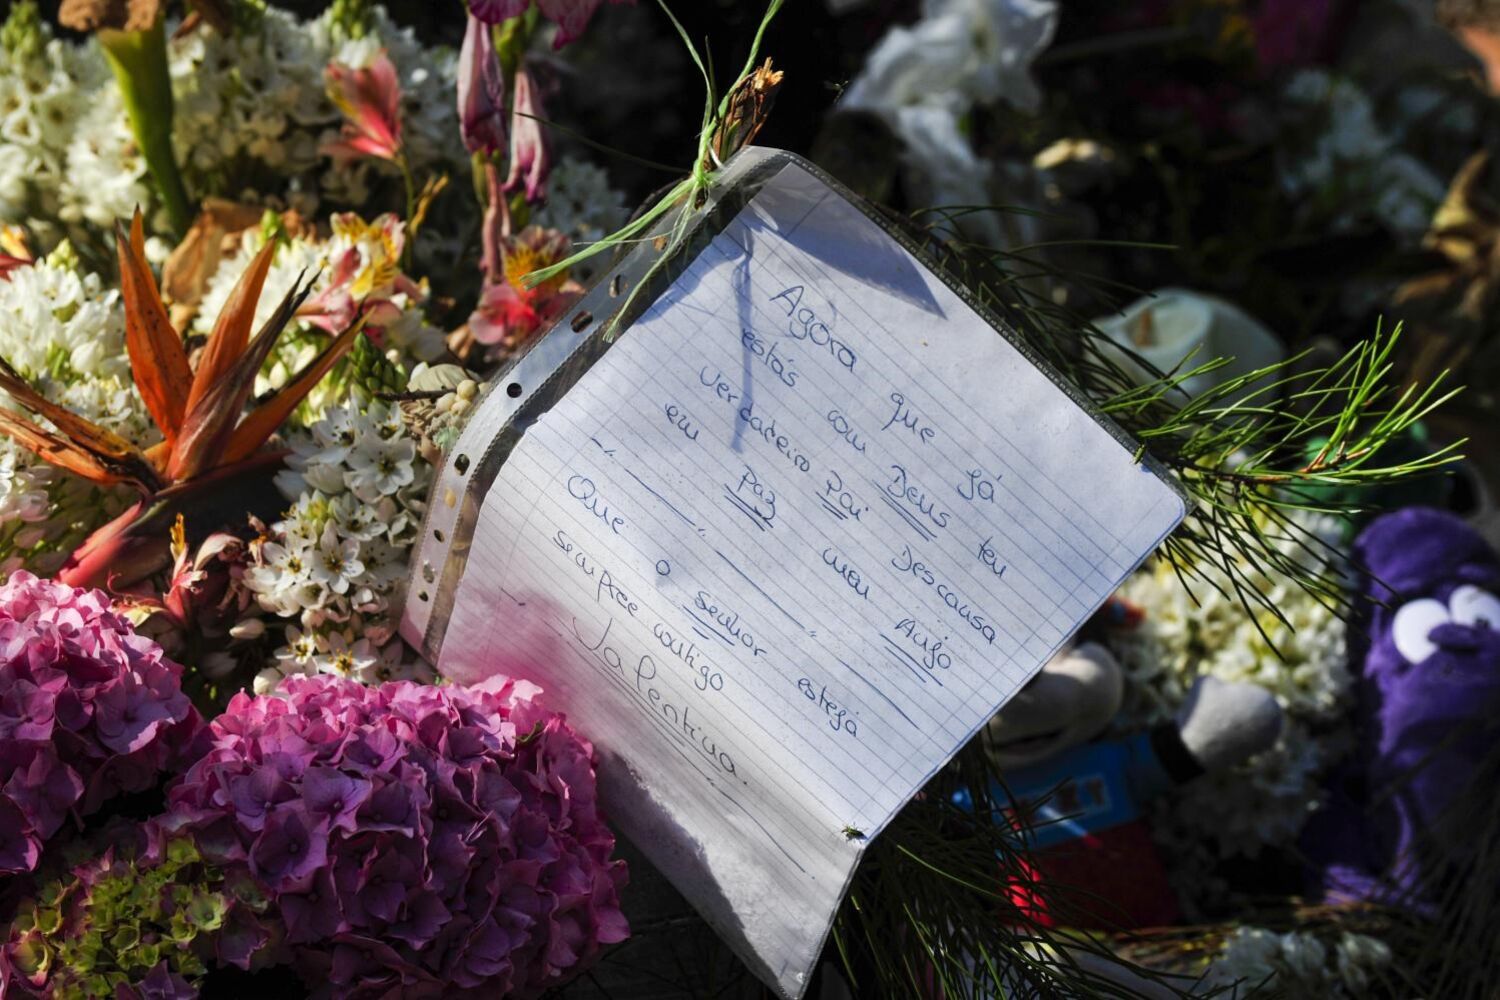 Agora que já
estás com Deus teu
verdadeiro Pai Descansa
em Paz meu Anjo
Que o senhor esteja
sempre contigo